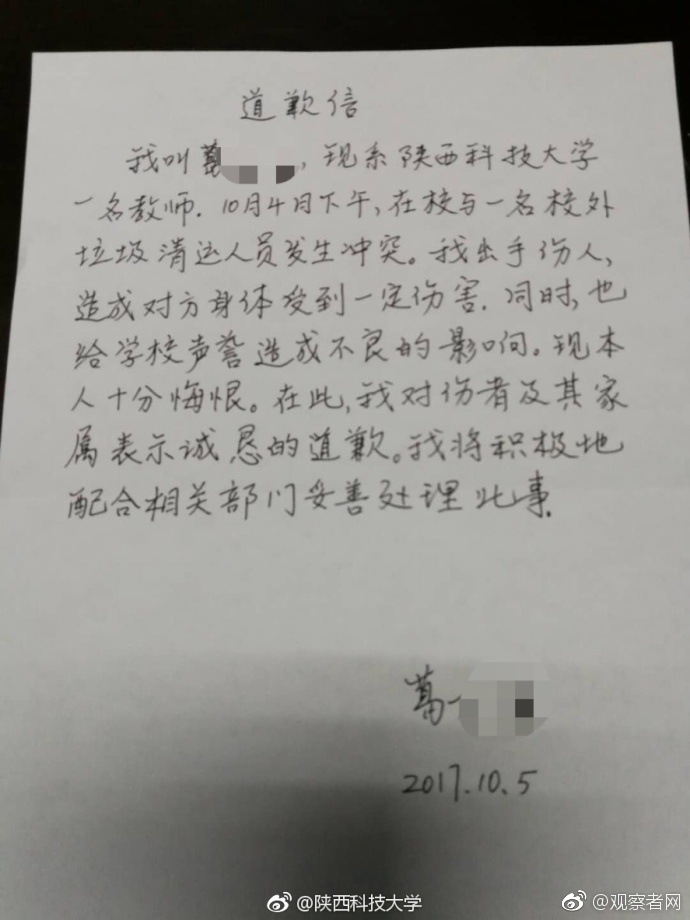 道歉信
我叫葛，现系陕西科技大学
一名教师. 10月4月下午，在校与一名校外
垃圾清运人员发生冲突。我出手伤人，
造成对方身体受到一定伤害. 同时，也
给学校声誉造成不良的影响。现本
人十分悔恨。在此，我对伤者及其家
属表示诚恳的道歉。我将积极地
配合相关部门妥善处理此事.
葛
2017.10.5
@陕西科技大学
@观察者网